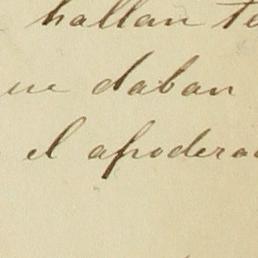 hallan te
ue daban
el apodera